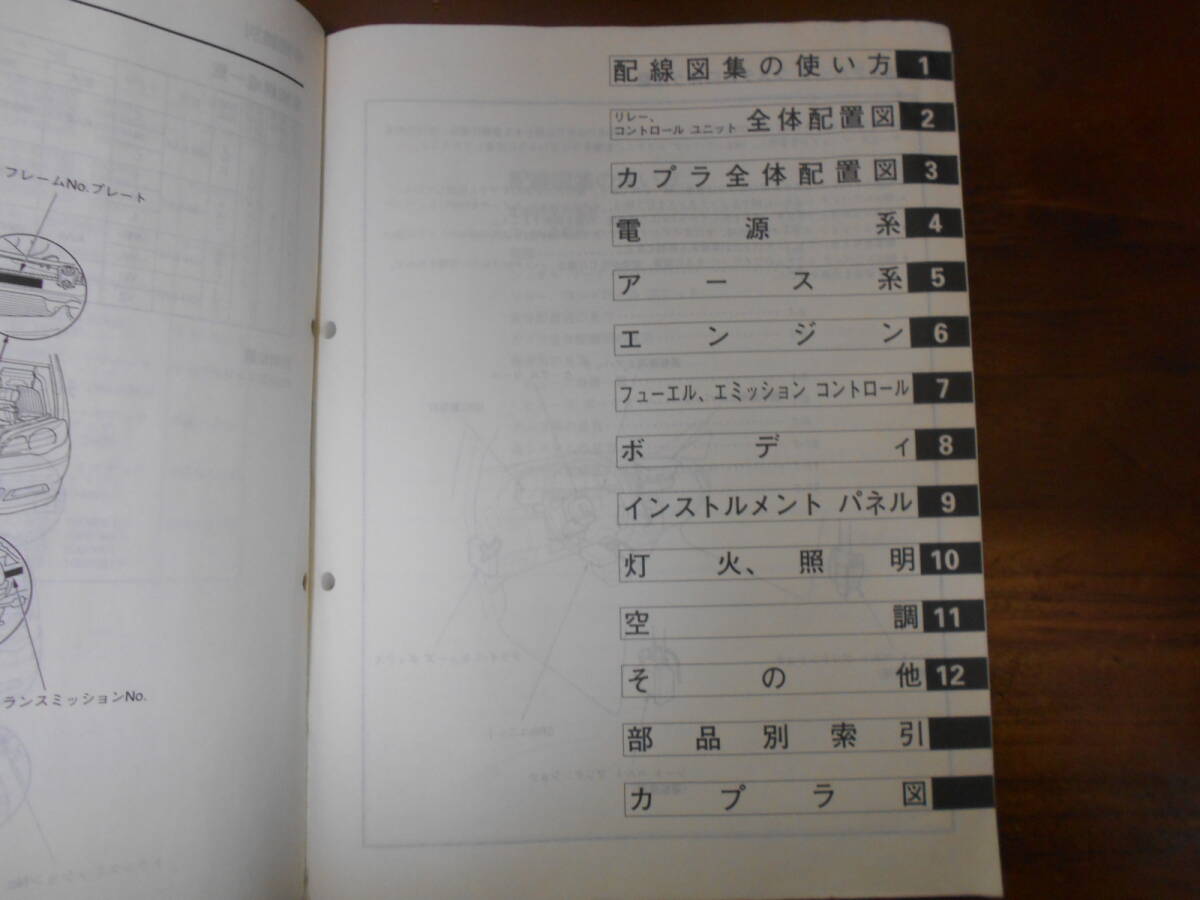 フレームNo.プレート
ランスミッションNo.
配線図集の使い方 1
リレー、
コントロール ユニット 全体配置図 2
カプラ全体配置図 3
電源系 4
アース系 5
エンジン 6
フューエル、エミッション コントロール 7
ボディ 8
インストルメント パネル 9
灯火、照明 10
空調 11
その他 12
部品別索引
カプラ図